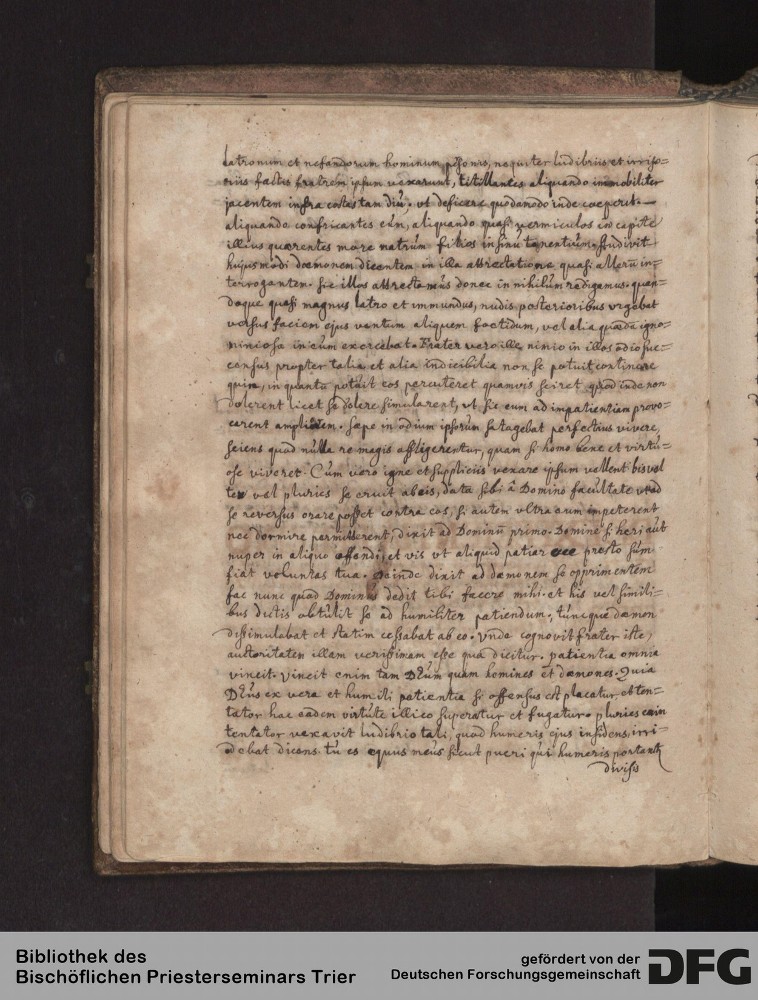 latronum et nefandorum hominum personis, nequiter ludibriis et irriso=
riis factis fratrem ipsum vexarunt, titillantes aliquando immobiliter
jacentem infra costas tam diu, ut deficere quodamodo inde coeperit.
aliquando confricantes eum, aliquando quasi vermiculos in capite
illius quaerentes more matrum filios in sinu tenentium, audivit
hujusmodi daemonem dicentem in illa attrectatione quasi alterum in=
terrogantem. sic illos attrectamus donec in nihilum redigamus. quan=
doque quasi magnus latro et immundus, nudis posterioribus urgebat
versus faciem ejus ventum aliquem foetidum, vel alia quaedam igno=
miniosa in eum exercebat. Frater vero ille nimio in illos odio suc=
census propter talia et alia indicibilia non se potuit continere
quin, in quantum potuit eos percuteret quamvis sciret quod inde non
dolerent licet se dolere simularent, ut sic eum ad impatientiam provo=
carent. saepe in odium ipsorum satagebat perfectius vivere,
sciens quod nulla re magis affligerentur, quam si homo bene et virtu=
ose viveret. Cum vero igne et suppliciis vexare ipsum vellent bis vel
ter vel pluries se eruit ab eis, data sibi a Domino facultate
se reversus orare posset contra eos, si autem ultra eum impeterent
nec dormire permitterent, dixit ad Dominum primo. Domine si heri aut
nuper in aliquo offendi, et vis ut aliquid patiar ecce presto sum
fiat voluntas tua. Deinde dixit ad daemonem se opprimentem
fac nunc quod Dominus dedit tibi facere mihi. et his vel simili=
bus dictis obtulit se ad humiliter patiendum, tuncque daemon
dissimulabat et statim cessabat ab eo. Unde cognovit frater iste,
auctoritatem illam verissimam esse qua dicitur. patientia omnia
vincit. vincit enim tam Deum quam homines et daemones. Quia
Deus ex vera et humili patientia si offensus est placatur, et ten=
tator hac eadem virtute illico superatur et fugatur. pluries enim
tentator vexavit ludibrio tali, quod humeris ejus insidens, irri=
debat dicens. tu es equus meus sicut pueri qui humeris portantur
divisis
Bibliothek des
Bischöflichen Priesterseminars Trier
gefördert von der
Deutschen Forschungsgemeinschaft
DFG